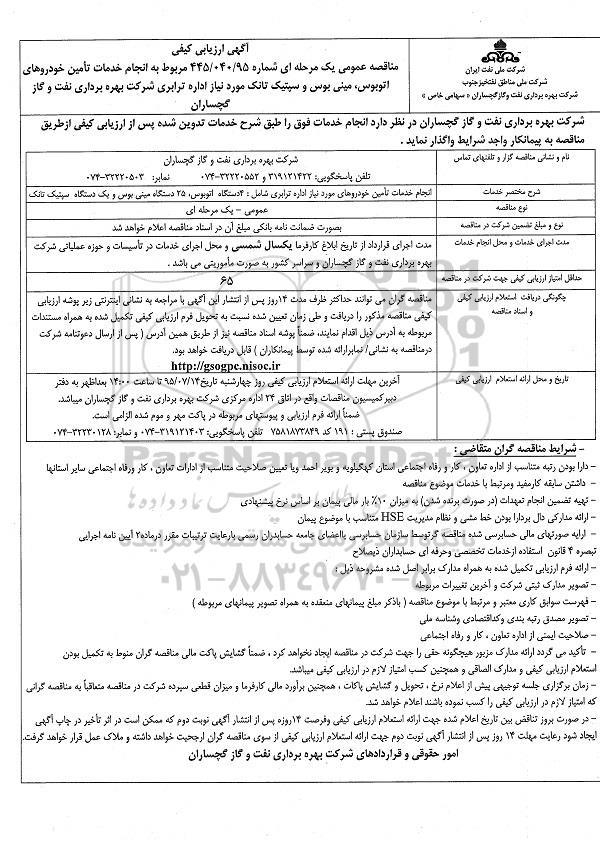 آگهی ارزیابی کیفی
مناقصه عمومی یک مرحله ای شماره ۴۴۵/۰۴۰/۹۵ مربوط به انجام خدمات تأمین خودروهای
اتوبوس، مینی بوس و سپتیک تانک مورد نیاز اداره ترابری شرکت بهره برداری نفت و گاز
گچساران
شرکت ملی نفت ایران
شرکت ملی مناطق نفتخیز جنوب
شرکت بهره برداری نفت وگاز گچساران «سهامی خاص»
شرکت بهره برداری نفت و گاز گچساران در نظر دارد انجام خدمات فوق را طبق شرح خدمات تدوین شده پس از ارزیابی کیفی ازطریق
مناقصه به پیمانکار واجد شرایط واگذار نماید .
نام و نشانی مناقصه گزار و تلفنهای تماس
شرکت بهره برداری نفت و گاز گچساران
تلفن پاسخگویی: ۳۱۹۱۲۱۴۲۲ و ۳۲۲۲۰۵۵۲-۰۷۴ نمابر: ۳۲۲۲۰۵۰۳-۰۷۴
شرح مختصر خدمات
انجام خدمات تأمین خودروهای مورد نیاز اداره ترابری شامل : ۴دستگاه اتوبوس، ۲۵ دستگاه مینی بوس و یک دستگاه سپتیک تانک
نوع مناقصه
عمومی – یک مرحله ای
نوع و مبلغ تضمین شرکت در مناقصه
بصورت ضمانت نامه بانکی مبلغ آن در اسناد مناقصه اعلام خواهد شد
مدت اجرای خدمات و محل انجام خدمات
مدت اجرای قرارداد از تاریخ ابلاغ کارفرما یکسال شمسی و محل اجرای خدمات در تأسیسات و حوزه عملیاتی شرکت
بهره برداری نفت و گاز گچساران و سراسر کشور به صورت مأموریتی می باشد .
حداقل امتیاز ارزیابی کیفی جهت شرکت در مناقصه
۶۵
چگونگی دریافت استعلام ارزیابی کیفی
و اسناد مناقصه
مناقصه گران می توانند حداکثر ظرف مدت ۱۴روز پس از انتشار این آگهی با مراجعه به نشانی اینترنتی زیر پوشه ارزیابی
کیفی مناقصه مذکور را دریافت و طی زمان تعیین شده نسبت به تحویل فرم ارزیابی کیفی تکمیل شده به همراه مستندات
مربوطه به آدرس ذیل اقدام نمایند، ضمناً پوشه اسناد مناقصه نیز از طریق همین آدرس ( پس از ارسال دعوتنامه شرکت
درمناقصه به نشانی/ نمابرارائه شده توسط پیمانکاران ) قابل دریافت خواهد بود.
http://gsogpc.nisoc.ir
تاریخ و محل ارائه استعلام ارزیابی کیفی
آخرین مهلت ارائه استعلام ارزیابی کیفی روز چهارشنبه تاریخ۹۵/۰۷/۱۴ تا ساعت ۱۴:۰۰ بعدازظهر به دفتر
دبیرکمیسیون مناقصات واقع در اتاق ۲۴ اداره مرکزی شرکت بهره برداری نفت و گاز گچساران میباشد.
ضمناً ارائه فرم ارزیابی و پیوستهای مربوطه در پاکت مهر و موم شده الزامی است.
صندوق پستی : ۱۹۱ کد ۷۵۸۱۸۷۳۸۴۹ تلفن پاسخگویی: ۳۱۹۱۲۱۴۰۳-۰۷۴ و نمابر: ۳۲۲۳۰۱۲۸-۰۷۴
– شرایط مناقصه گران متقاضی :
– دارا بودن رتبه متناسب از اداره تعاون ، کار و رفاه اجتماعی استان کهگیلویه و بویر احمد ویا تعیین صلاحیت متناسب از ادارات تعاون ، کار ورفاه اجتماعی سایر استانها
– داشتن سابقه کارمفید ومرتبط با خدمات موضوع مناقصه
– تهیه تضمین انجام تعهدات (در صورت برنده شدن) به میزان ۱۰٪ بار مالی پیمان بر اساس نرخ پیشنهادی
– ارائه مدارکی دال بردارا بودن خط مشی و نظام مدیریت HSE متناسب با موضوع پیمان
– ارایه صورتهای مالی حسابرسی شده مناقصه گرتوسط سازمان حسابرسی یااعضای جامعه حسابدران رسمی بارعایت ترتیبات مقرر درماده۲ آیین نامه اجرایی
تبصره ۴ قانون استفاده ازخدمات تخصصی وحرفه ای حسابداران ذیصلاح
– ارائه فرم ارزیابی تکمیل شده به همراه مدارک برابر اصل شده مشروحه ذیل :
– تصویر مدارک ثبتی شرکت و آخرین تغییرات مربوطه
– فهرست سوابق کاری معتبر و مرتبط با موضوع مناقصه ( باذکر مبلغ پیمانهای منعقده به همراه تصویر پیمانهای مربوطه )
– تصویر مصدق رتبه بندی وکداقتصادی وشناسه ملی
– صلاحیت ایمنی از اداره تعاون ، کار و رفاه اجتماعی
– تأکید می گردد ارائه مدارک مزبور هیچگونه حقی را جهت شرکت در مناقصه ایجاد نخواهد کرد ، ضمناً گشایش پاکت مالی مناقصه گران منوط به تکمیل بودن
استعلام ارزیابی کیفی و مدارک الصاقی و همچنین کسب امتیاز لازم در ارزیابی کیفی میباشد.
– زمان برگزاری جلسه توجیهی پیش از اعلام نرخ ، تحویل و گشایش پاکات ، همچنین برآورد مالی کارفرما و میزان قطعی سپرده شرکت در مناقصه متعاقباً به مناقصه گرانی
که امتیاز لازم در ارزیابی کیفی را کسب نموده باشند اعلام خواهد شد.
– در صورت بروز تناقض بین تاریخ اعلام شده جهت ارائه استعلام ارزیابی کیفی وفرصت ۱۴روزه پس از انتشار آگهی نوبت دوم که ممکن است در اثر تأخیر در چاپ آگهی
ایجاد شود رعایت مهلت ۱۴ روز پس از انتشار آگهی نوبت دوم جهت ارائه استعلام ارزیابی کیفی از سوی مناقصه گران ارجحیت خواهد داشته و ملاک عمل قرار خواهد گرفت.
امور حقوقی و قراردادهای شرکت بهره برداری نفت و گاز گچساران